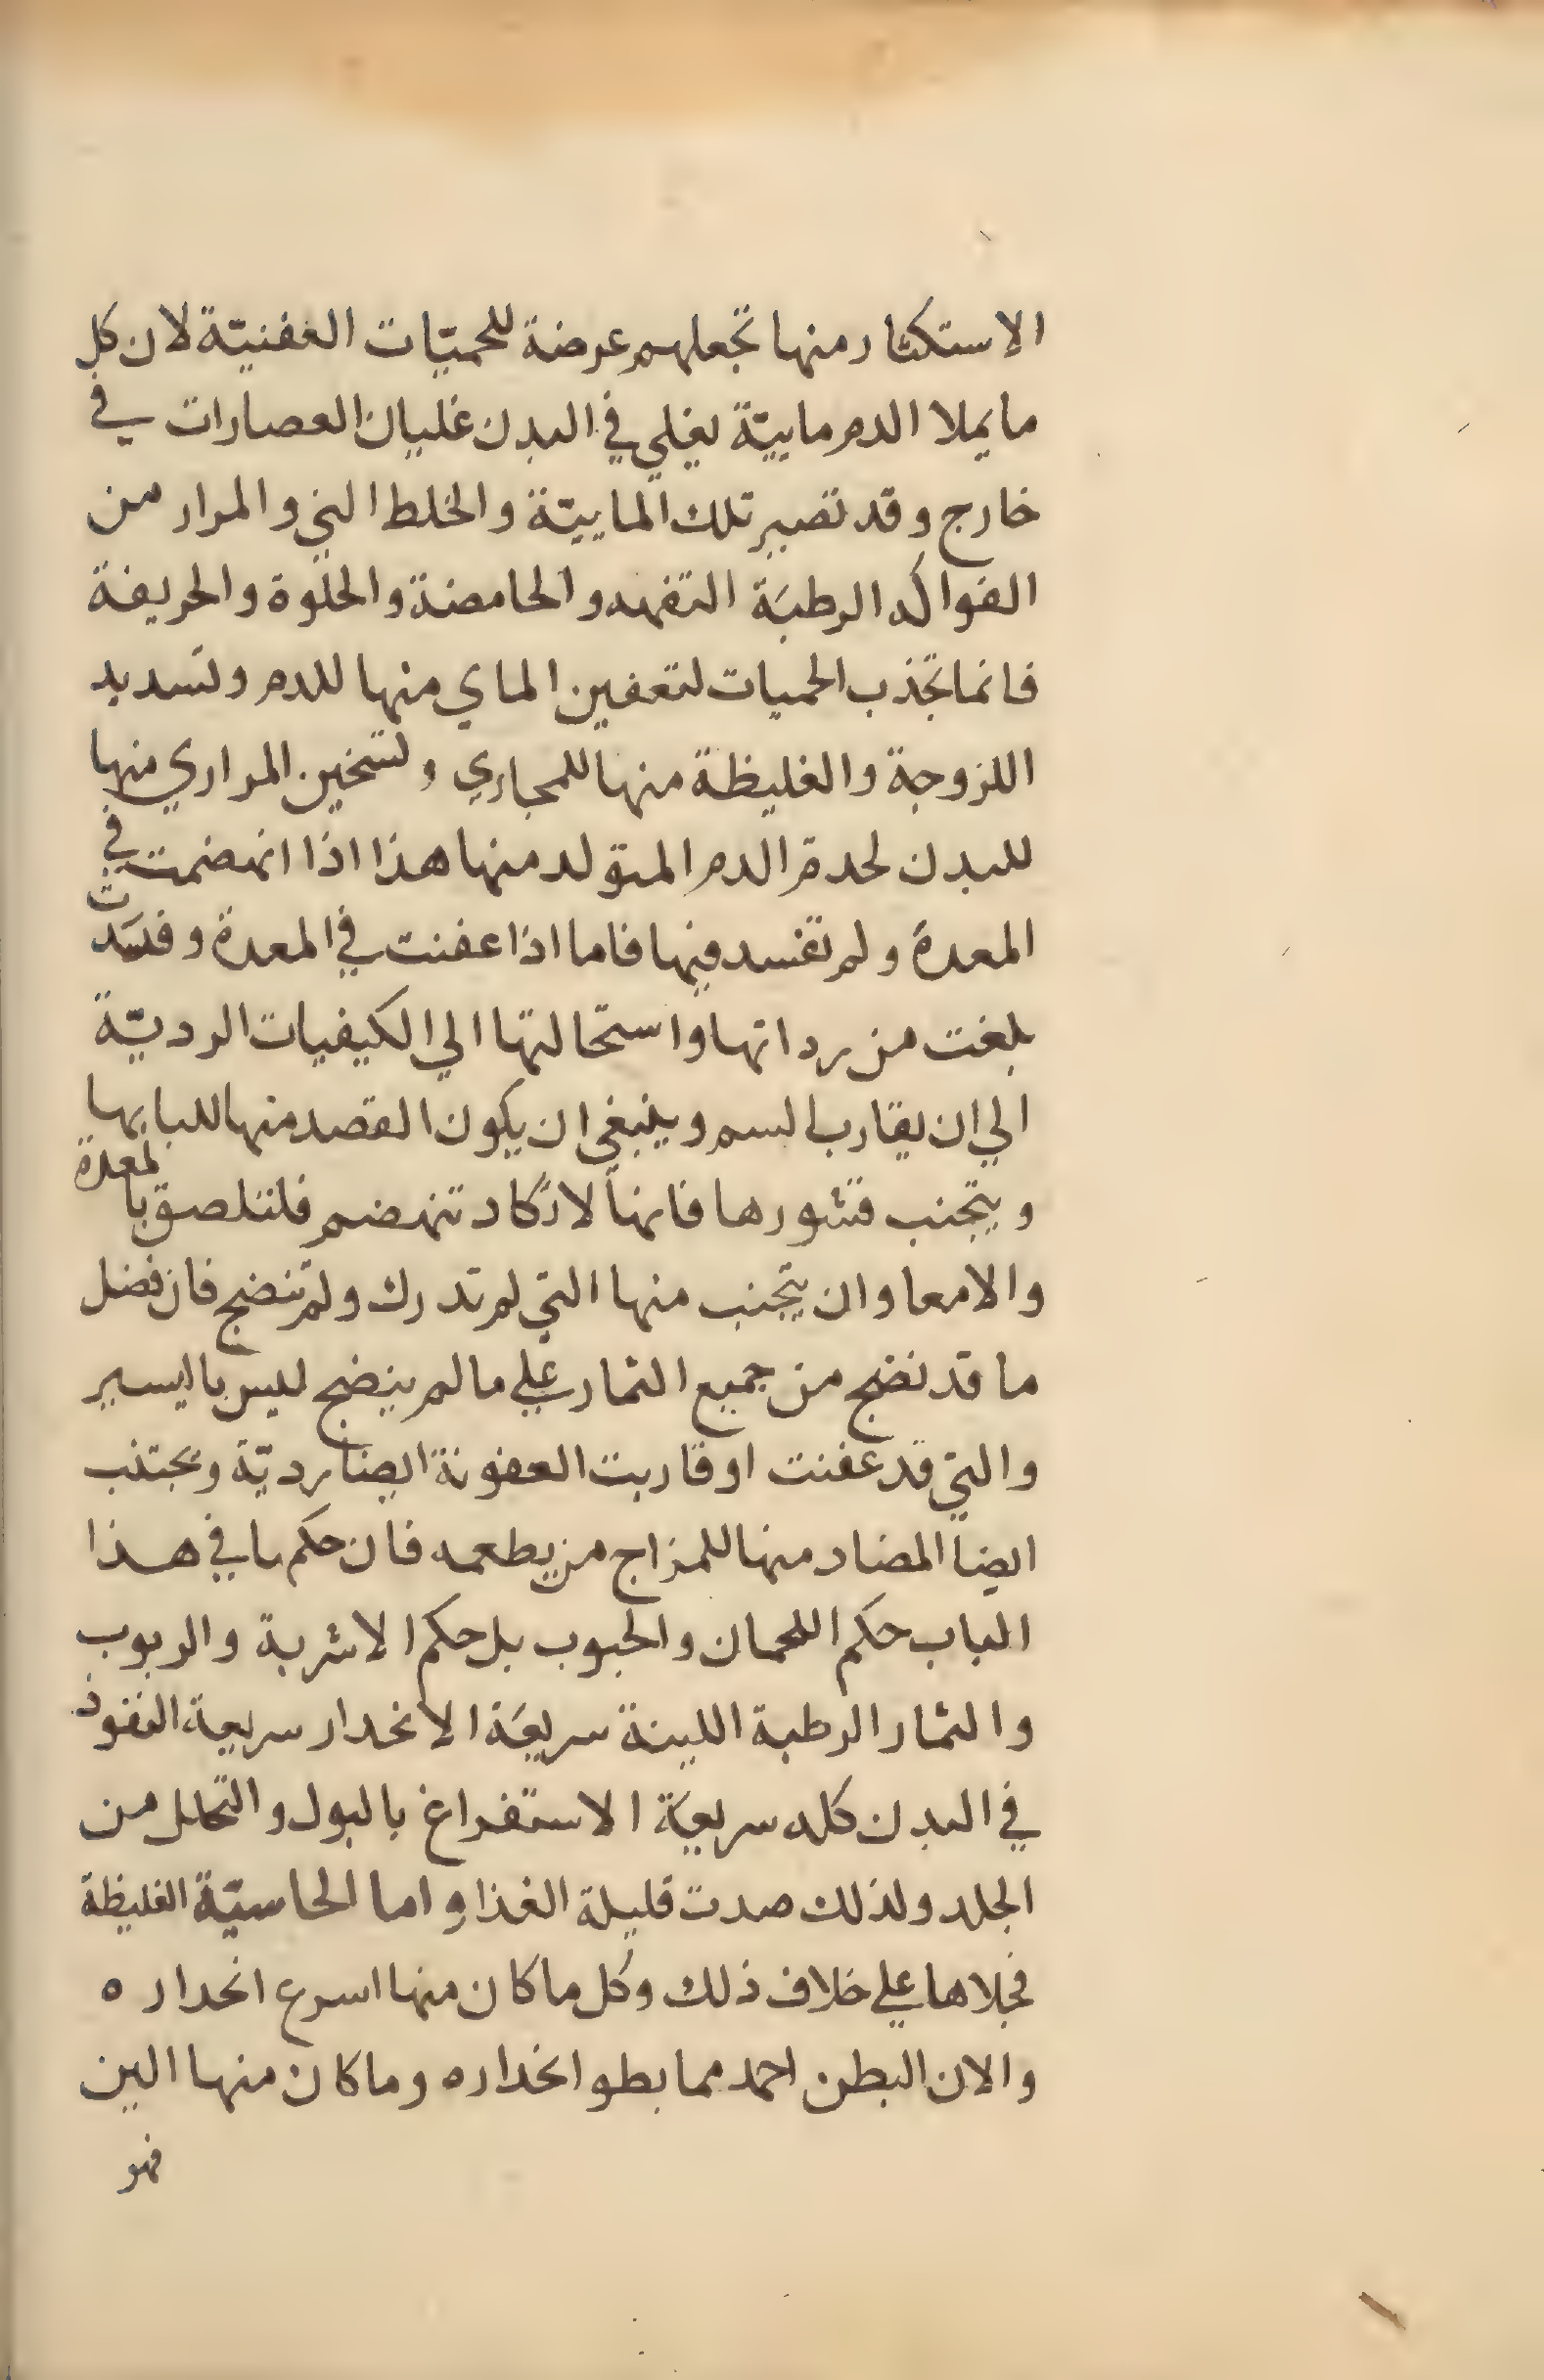 الاستكثار منها تجعلهم عرضة للحميّات العفنيّة لان كل
ما يملا الدم ماييّة يغلي في البدن غليان العصارات في
خارج وقد تصير تلك الماييّة والخلط الني والمرار من
الفواكه الرطبَة التفهه والحامضة والحلوة والحريفة
فانما تجذب الحميات لتعفين الماي منها للدم ولتسديد
اللزوجة والغليظة منها للمجاري ولتسخين المراري منها
للبدن لحدة الدم المتولد منها هذا اذا انهضمت في
المعدة ولم تفسد فيها فاما اذا عفنت في المعدة وفسَدت
بلغت من رداتها واستحالتها الي الكيفيات الرديّة
الي ان يقارب السم وينبغي ان يكون القصد منها للبابها
ويتجنب قشورها فانها لا تكاد تنهضم فلتلصق بالمعدة
والامعا وان يتجنب منها التي لم تدرك ولم تنضج فان فضل
ما قد نضج من جميع الثمار علي ما لم ينضج ليس باليسير
والتي قد عفنت او قاربت العفونة ايضا رديّة ويجتنب
ايضا المضاد منها للمزاج من يطعمه فان حكم ما في هذا
الباب حكم اللحمان والحبوب بل حكم الاشربة والربوب
والثمار الرطبة اللينة سريعَة الانحدار سريعة النفوذ
في البدن كله سريعَة الاستفراغ بالبول والتحلل من
الجلد ولذلك صدت قليلة الغذا واما الحاسيّة الغليظة
فجلاها علي خلاف ذلك وكل ما كان منها اسرع انحداره
والان البطن احمد مما بطو انحداره وما كان منها الين
فهو